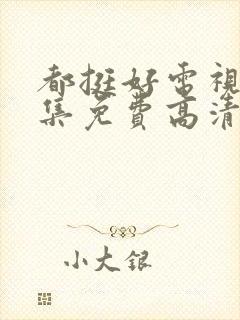 都挺好電視
集免費高清
小大銀